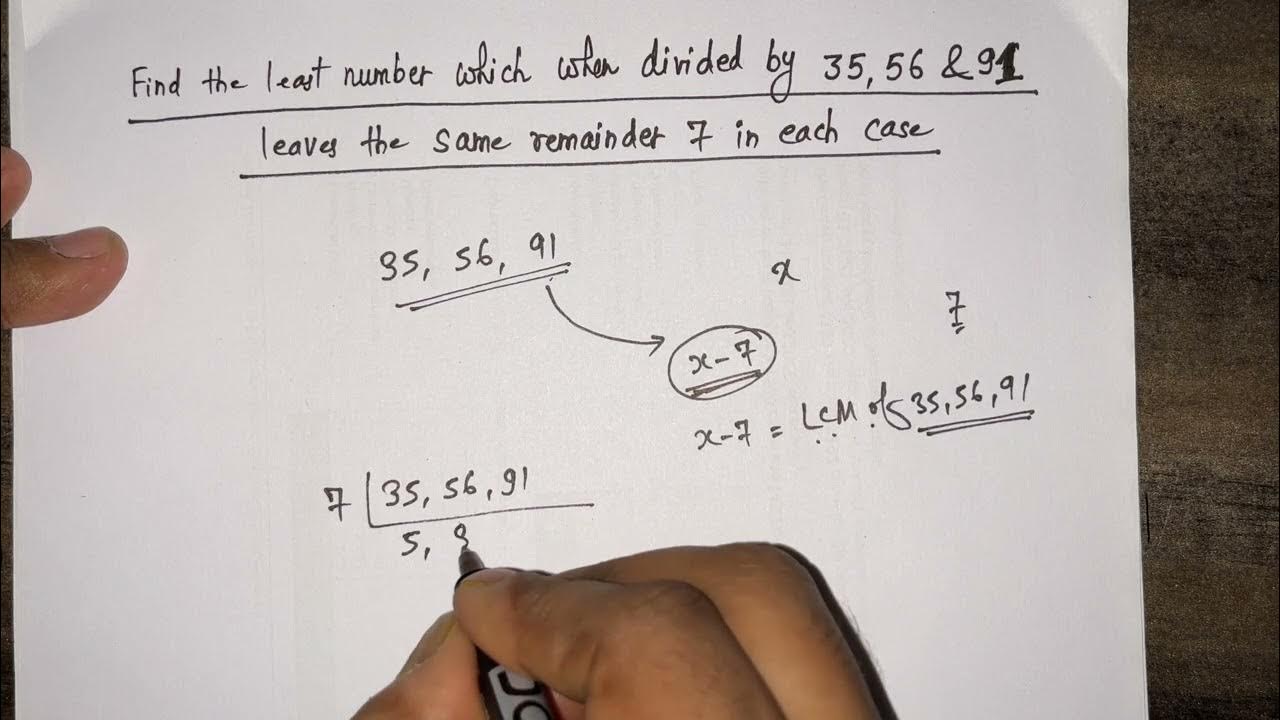 Find the least number which when divided by 35, 56 & 91
leaves the same remainder 7 in each case
35, 56, 91
x
7
x-7
x-7 = LCM of 35, 56, 91
7 35, 56, 91
5, 8